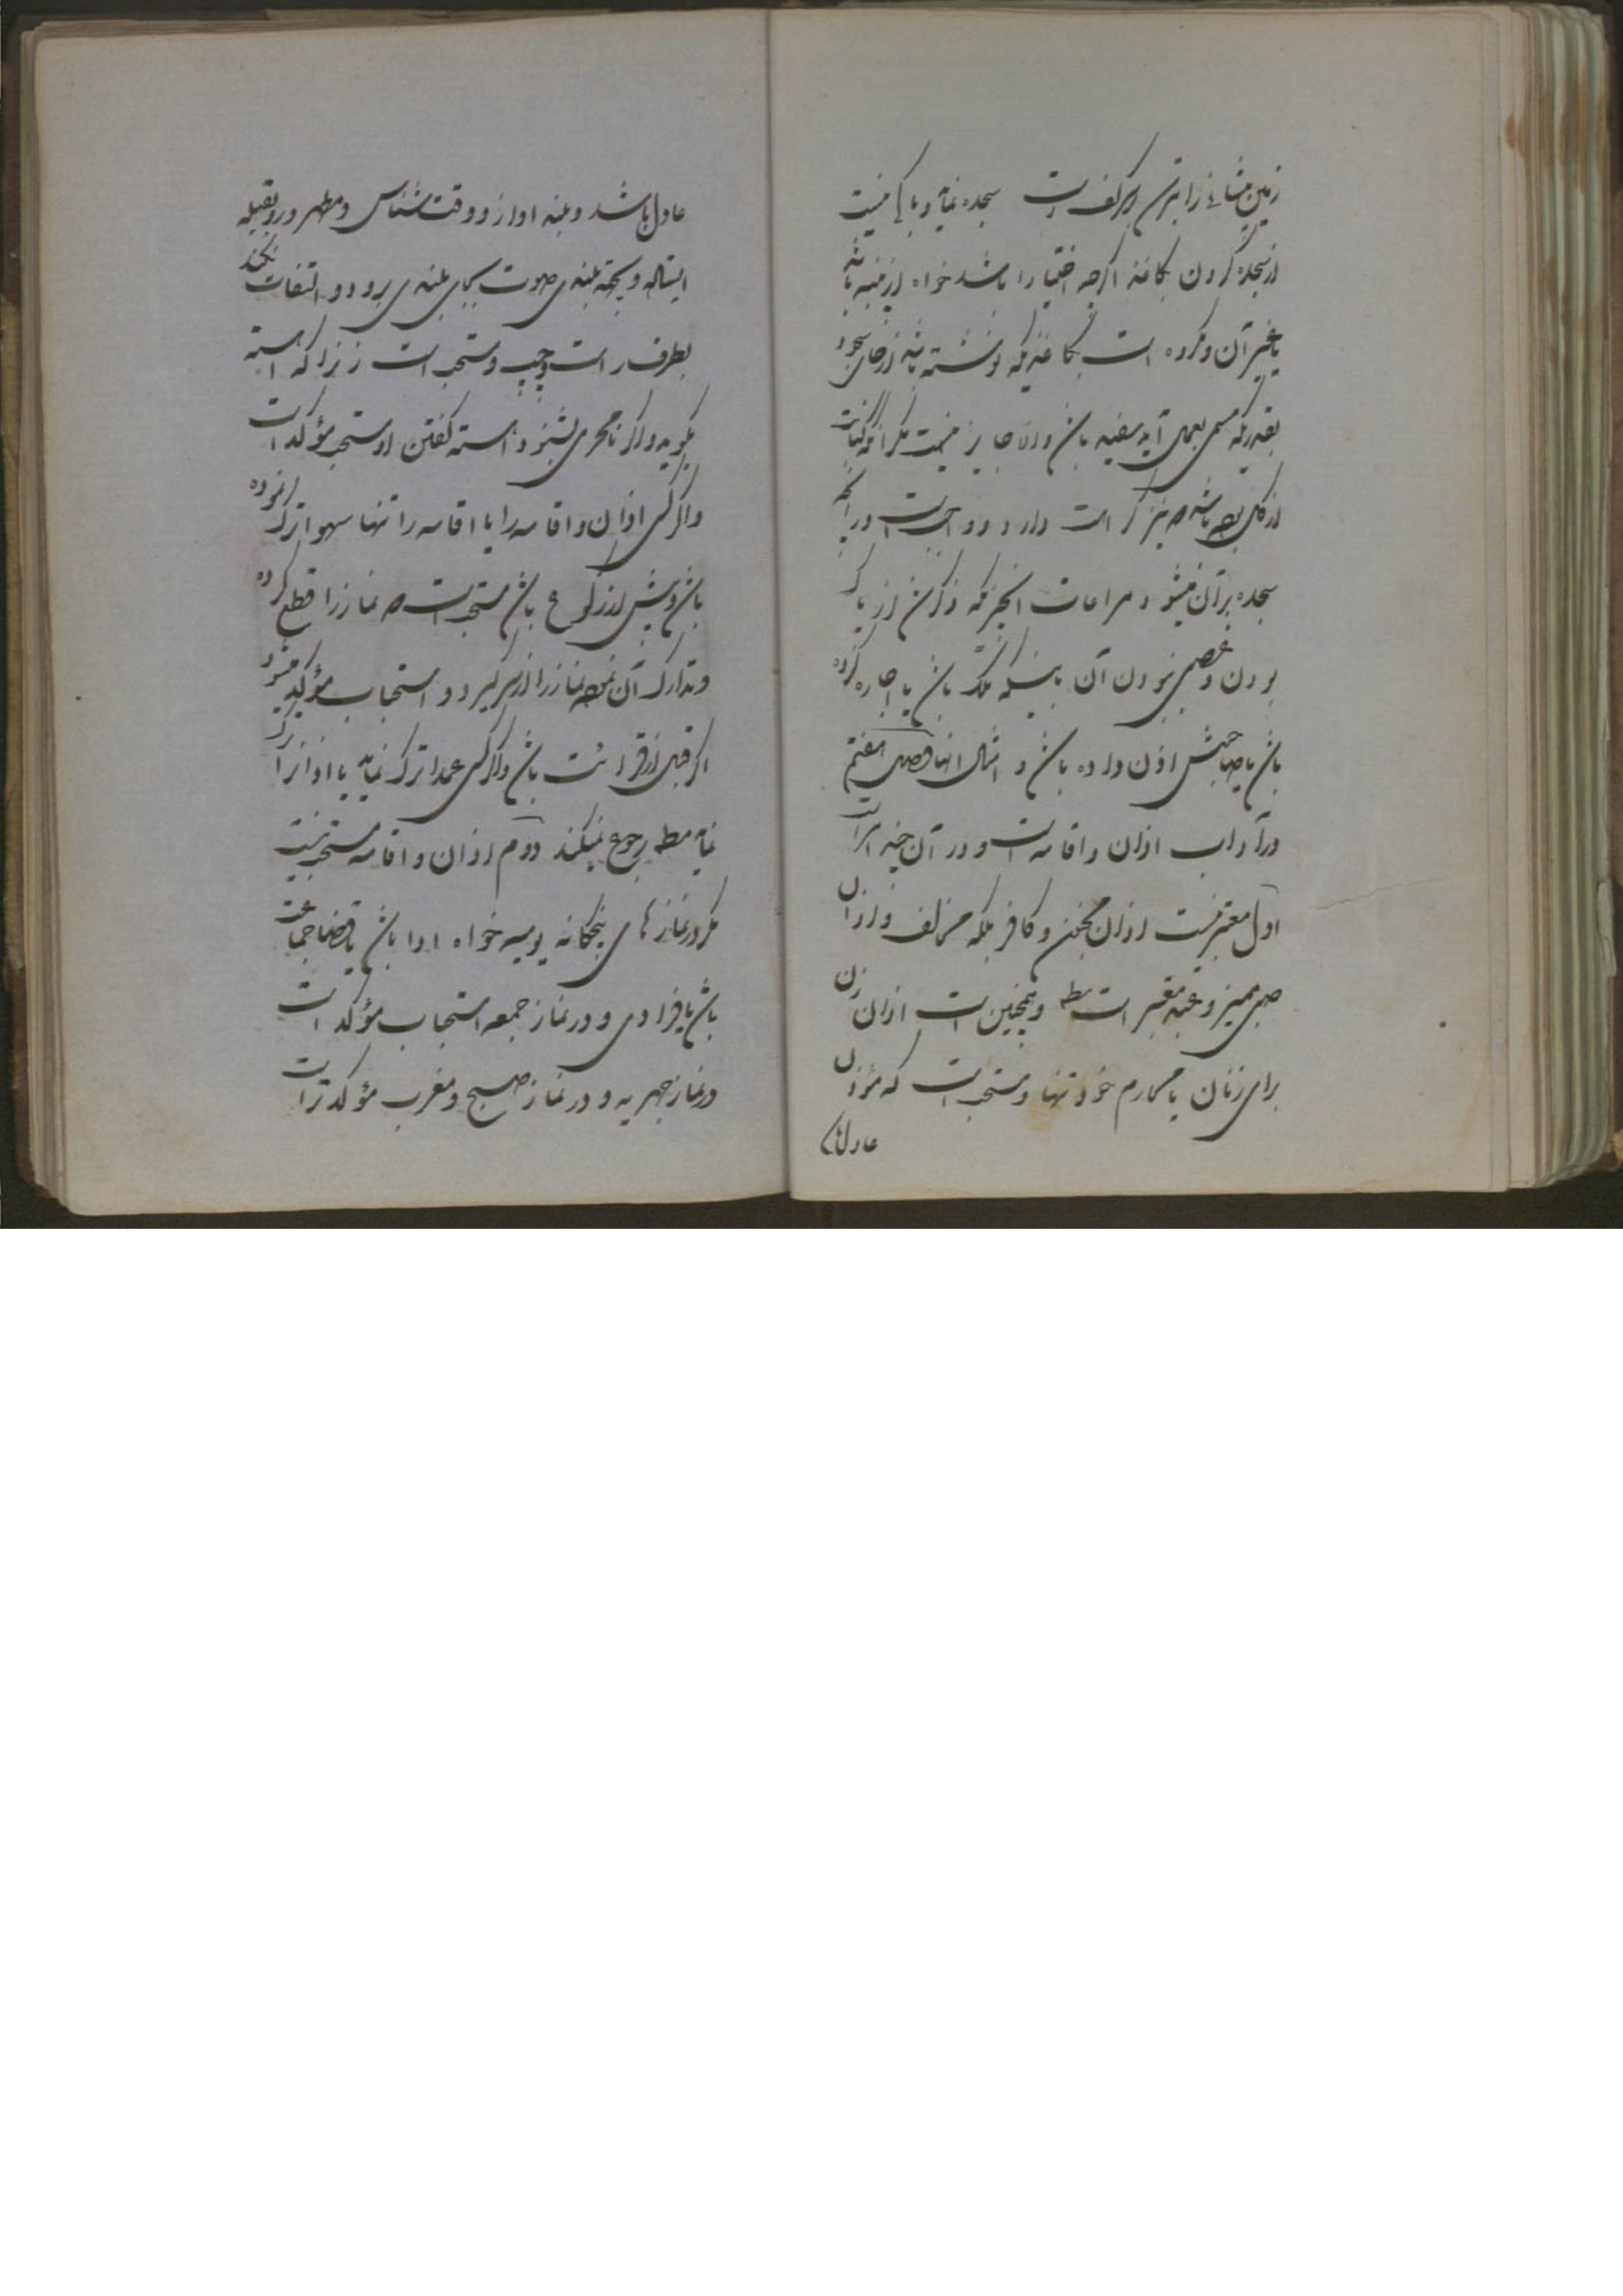 زمین مثانی را بترین بر کف است سجده نماید و باکی نیست
از سجده کردن بکاغذ اگرچه اختیارا باشد خواه از پنبه باشد
یا غیر آن و مکروه است بکاغذیکه نوشته باشد از جای سجود
بقدریکه مسمی بعمل آید سفید باشد والا جایز نیست مگر آنکه کتابت
از گل بوده باشد که نیز کراهت دارد و واجب است در آنچه
سجده بر آن میشود مراعات آنچیزیکه ذکر شد از پاک
بودن و غصبی نبودن آن باینکه ملک باشد یا اجاره کرده
باشد یا صاحبش اذن داده باشد و امثال اینها فصل هفتم
در آداب اذان و اقامه است و در آن چند امر است
اول معتبر نیست اذان مجنون و کافر بلکه مخالف و اذان
صبی ممیز و عبد معتبر است مطلقا و همچنین است اذان زن
برای زنان یا محارم خود تنها و مستحب است که مؤذن
عادل با
عادل باشد و بلند آواز و وقت شناس و مطهر و رو بقبله
ایستاده و بجهة بلندی صوت بجای بلندی برود و التفات نکند
بطرف راست و چپ و مستحب است زنرا که آهسته
بگوید و اگر نامحرمی بشنود آهسته گفتن او مستحب مؤکد است
و اگر کسی اذان و اقامه را یا اقامه را تنها سهوا ترک نموده
باشد و پیش از رکوع باشد مستحب است که نماز را قطع کرده
و تدارک آن نموده نماز را از سر گیرد و استحباب مؤکد میشود
اگر قبل از قرائت باشد و اگر کسی عمدا ترک نماید یا اذانرا ترک
نماید مطلقا رجوع نمیکند دوم اذان و اقامه مستحب نیست
مگر در نمازهای پنجگانه یومیه خواه ادا باشد یا قضا جماعت
باشد یا فرادی و در نماز جمعه استحباب مؤکد است
و نماز جهریه و در نماز صبح و مغرب مؤکدتر است